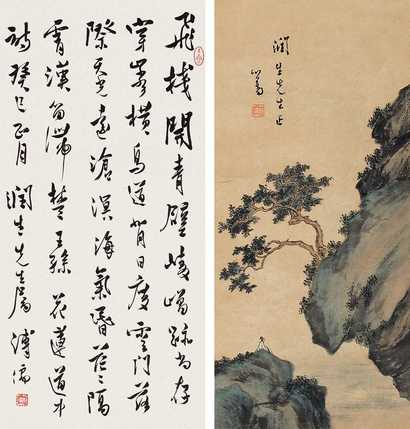 飛棧開青壁崚嶒跡尚存
穿岑橫鳥道日度雲門
際天光遠滄溟海氣昏茫茫隔
霄漢留滯楚王孫 花蓮道中
詩癸巳正月 潤生先生屬 溥儒
潤生先生正
心畬